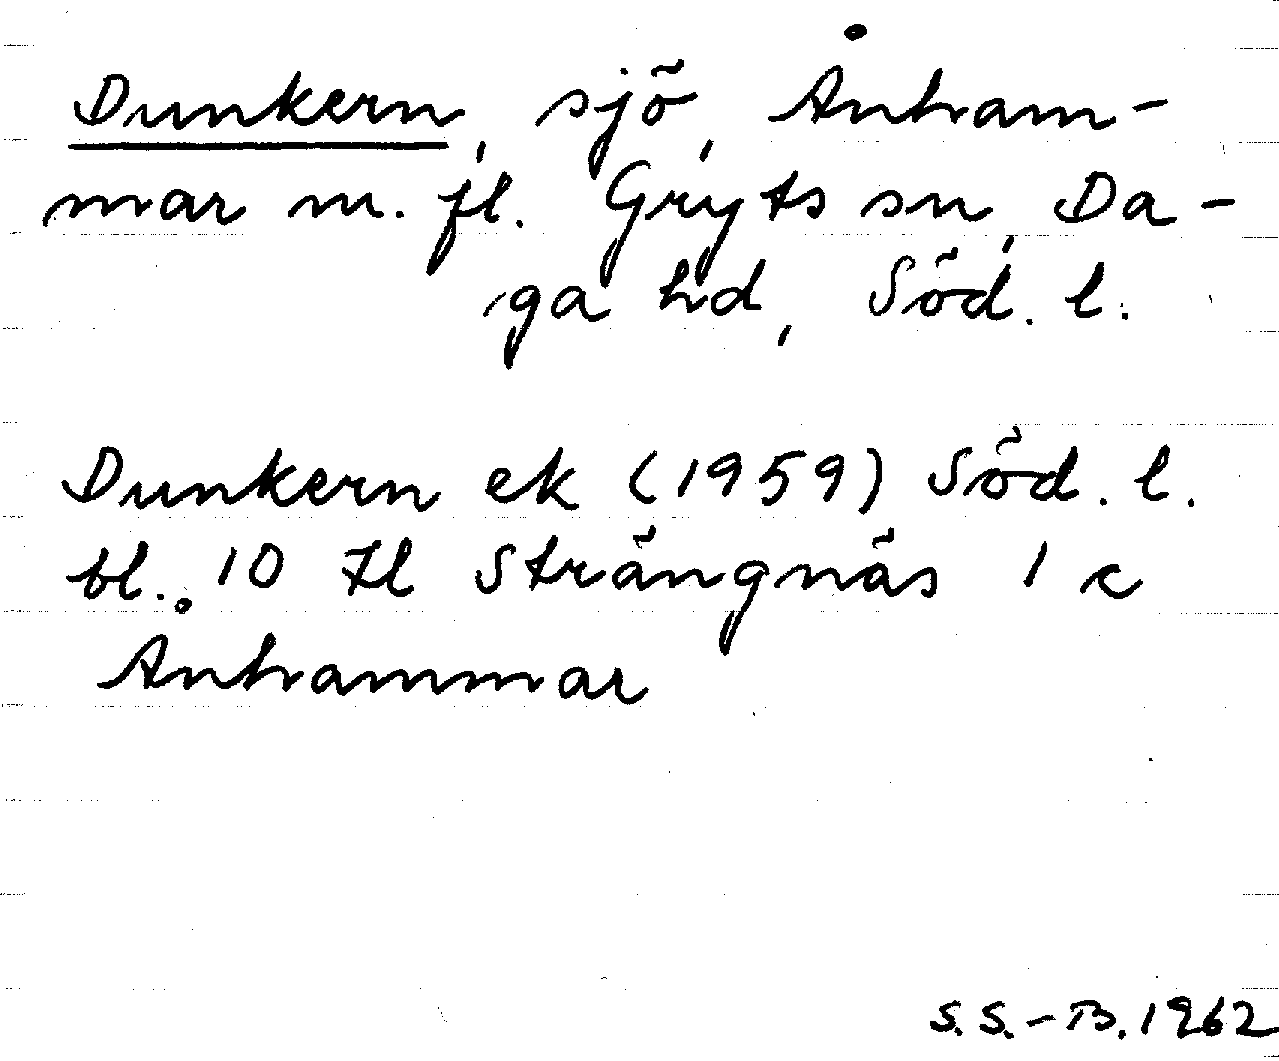 Dunkern, sjö, Ånham-
mar m. fl. Gryts sn, Da-
ga hd, Söd. l.
Dunkern ek (1959) Söd. l.
bl. 10 Hl Strängnäs 1 c
Ånhammar
S.S.-B. 1962